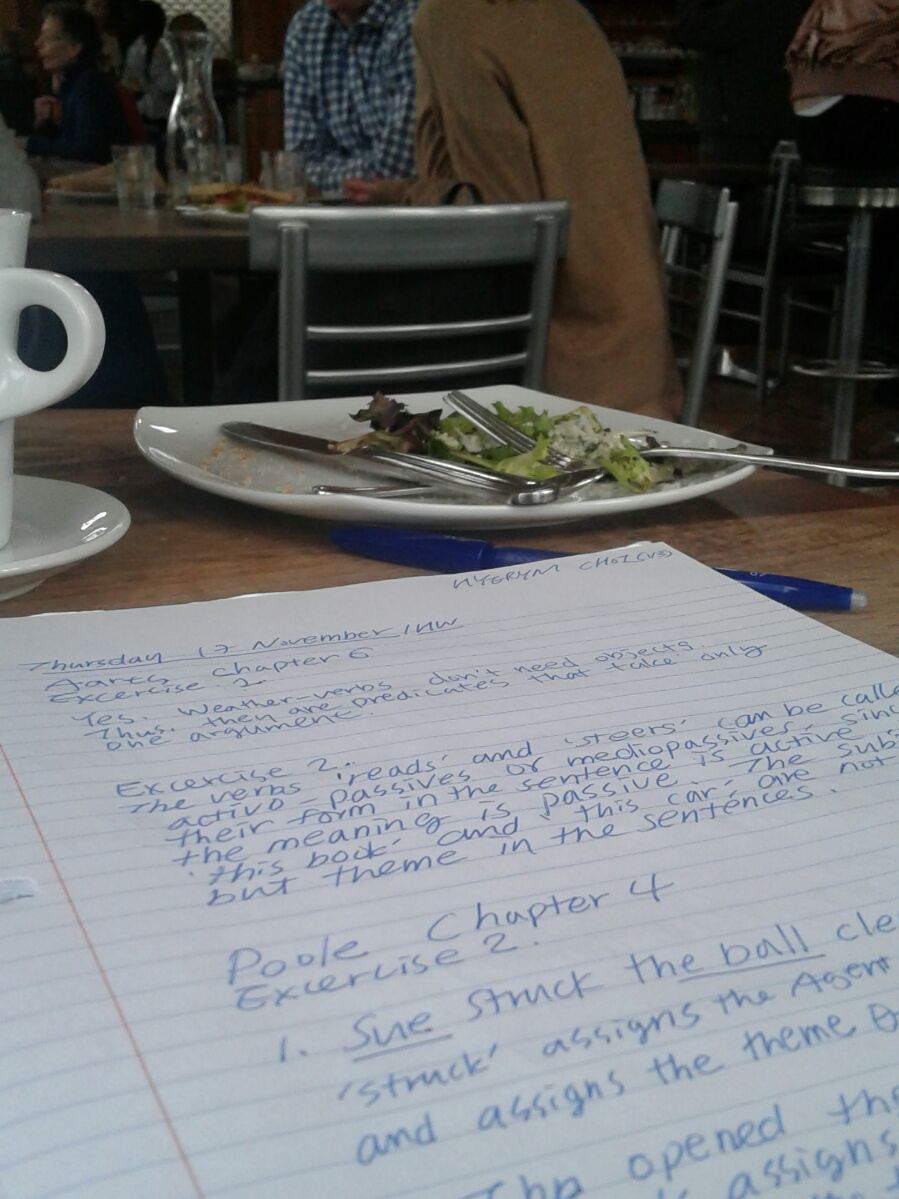 HYERYM CHOI (V3)
Thursday 17 November / HW
Aarts chapter 6
Excercise 2.
Yes. Weather-verbs don't need objects.
Thus, then are predicates that take only
one argument.
Excercise 2.
The verbs 'reads' and 'steers' can be calle
activo-passives or mediopassives, sinc
their form in the sentence is active
the meaning is passive. The subj
'this book' and 'this car' are not
but theme in the sentences.
Poole Chapter 4
Excercise 2.
1. Sue struck the ball cle
'struck' assigns the Agent
and assigns the theme θ
The opened the
assigns